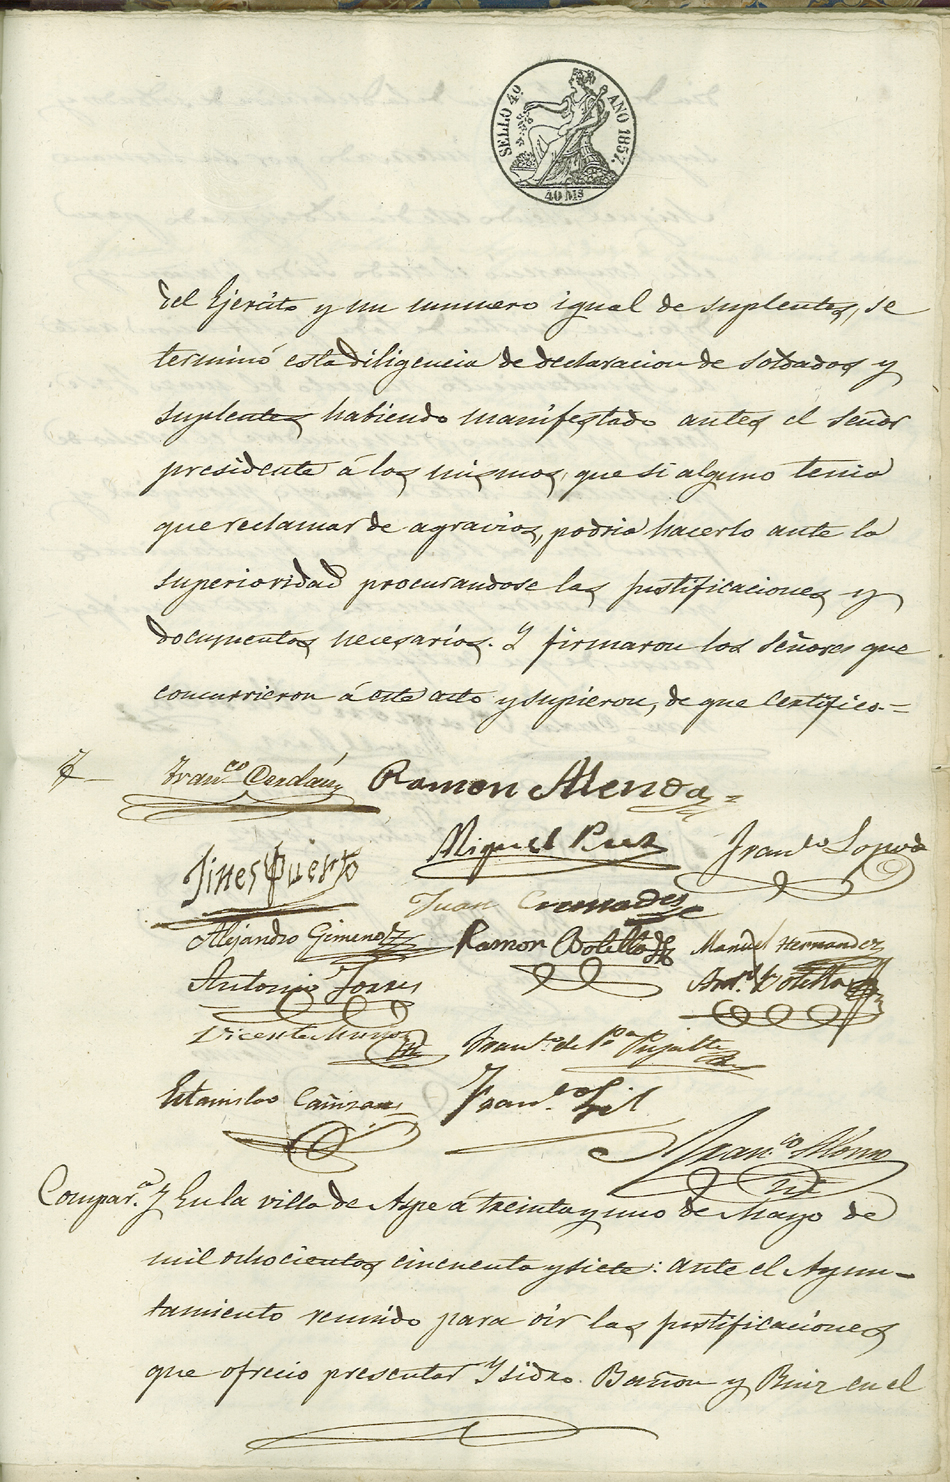 SELLO 4º AÑO 1857.
40 Mˢ
del Ejercito y un numero igual de suplentes, se
terminó esta diligencia de declaracion de soldados y
suplentes habiendo manifestado antes el Señor
presidente á los mismos, que si alguno tenia
que reclamar de agravios, podria hacerlo ante la
superioridad procurandose las justificaciones y
documentos necesarios. Y firmaron los Señores que
concurrieron á este acto y supieron, de que Certifico.=
Franᶜᵒ Cerdán Ramon Alenda
Jines Puerto Miguel Ruiz Franᶜᵒ
Juan Cremades
Alejandro Gimenez Ramon Botella Manuel Hernandez
Antonio Torres Antᵒ Botella
Vicente Muñoz Franᶜᵒ de Pᵃ Pujalte
Estanislao Cañizares Franᶜᵒ Gil
Franᶜᵒ Alonso
Comparᵃ. Y En la villa de Aspe á treinta y uno de Mayo de
mil ochocientos cincuenta y siete: ante el Ayun-
tamiento reunido para oir las justificaciones
que ofrecio presentar Ysidro Bañon y Ruiz en el